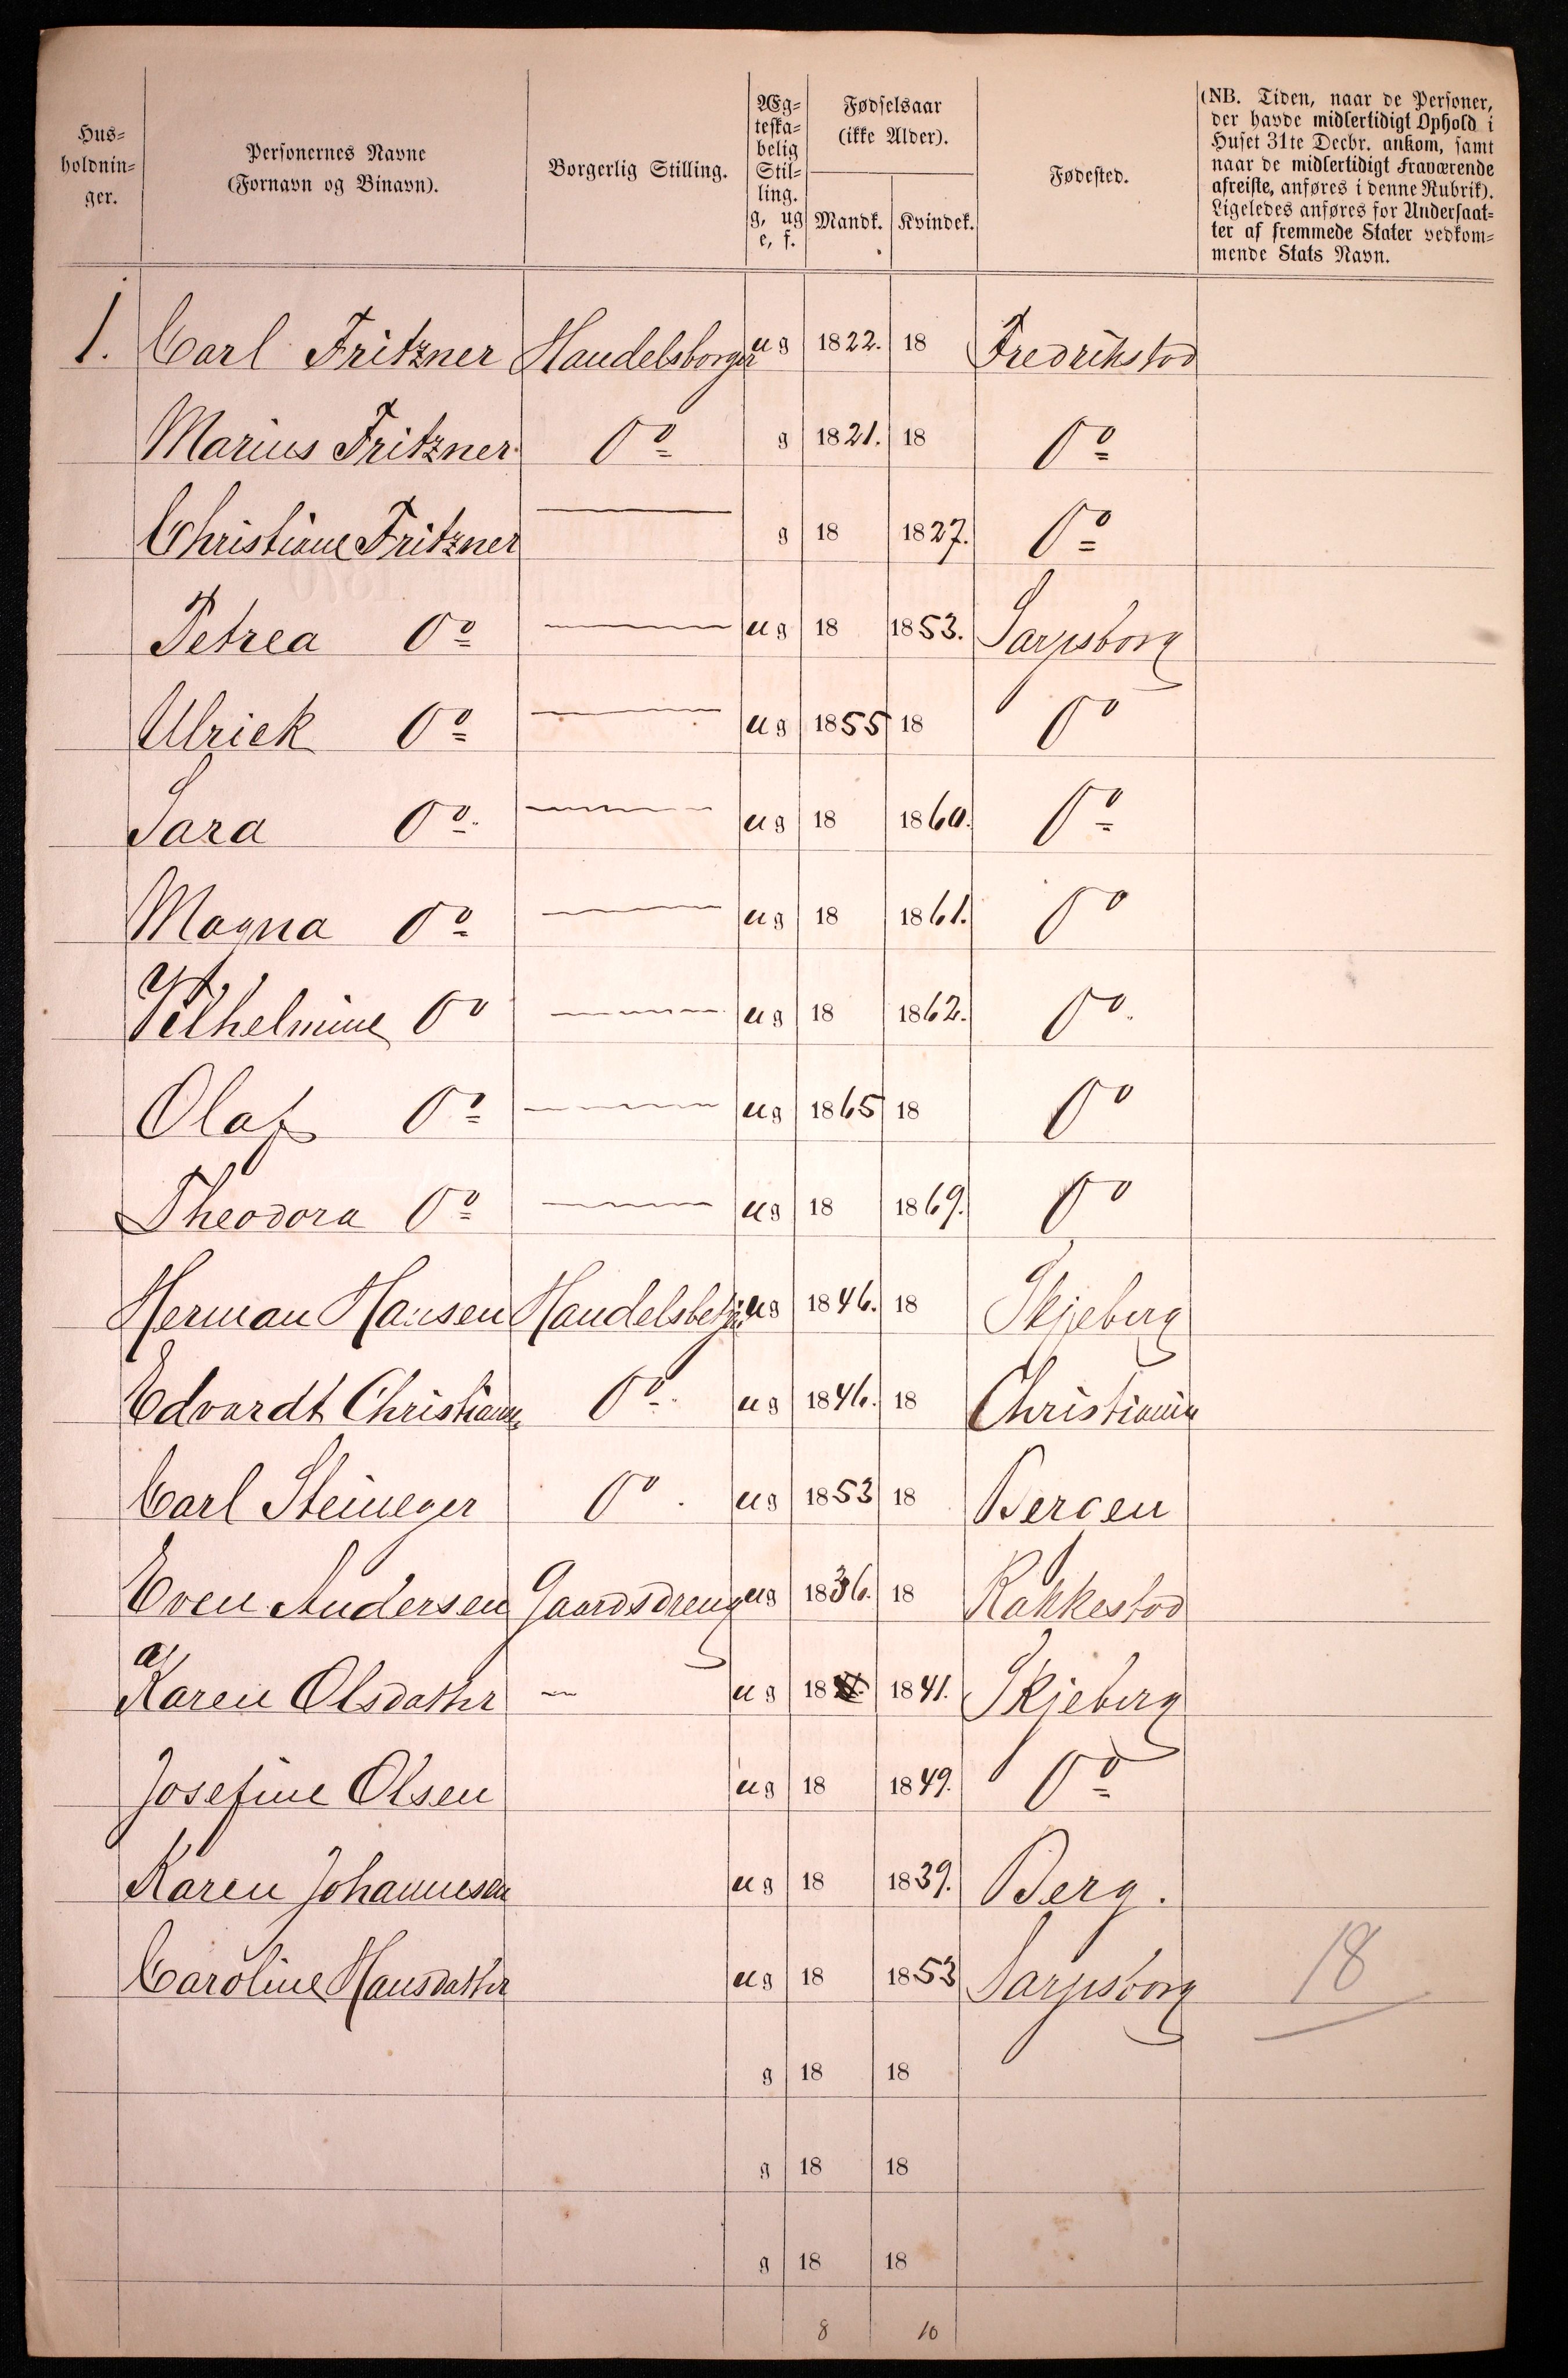 Hus-
holdnin-
ger.
Personernes Navne
(Fornavn og Binavn).
Borgerlig Stilling.
Æg-
teska-
belig
Stil-
ling.
g, ug
e, f.
Fødselsaar
(ikke Alder).
Mandk. Kvindek.
Fødested.
(NB. Tiden, naar de Personer,
der havde midlertidigt Ophold i
Huset 31te Decbr. ankom, samt
naar de midlertidigt fraværende
afreiste, anføres i denne Rubrik).
Ligeledes anføres for Undersaat-
ter af fremmede Stater vedkom-
mende Stats Navn.
1. Carl Fritzner Handelsborger ug 1822. 18 Fredrikstad
Marius Fritzner Do g 1821. 18 Do
Christiane Fritzner g 18 1827. Do
Petrea Do ug 18 1853. Sarpsborg
Ulrick Do ug 1855 18 Do
Sara Do ug 18 1860. Do
Magna Do ug 18 1861. Do
Vilhelmine Do ug 18 1862. Do
Olaf Do ug 1865 18 Do
Theodora Do ug 18 1869. Do
Herman Hansen ug 1846. 18 Skjeberg
Edvardt Do ug 1846. 18 Christiania
Carl Steineger Do ug 1853 18 Bergen
Even Andersen Gaardsdreng ug 1836. 18 Rakkestad
Karen Olsdatter — ug 18 1841. Skjeberg
Josefine Olsen ug 18 1849. Do
Karen Johannesen ug 18 1839. Berg.
Caroline Hansdatter ug 18 1853 Sarpsborg 18
g 18 18
g 18 18
g 18 18
8 10